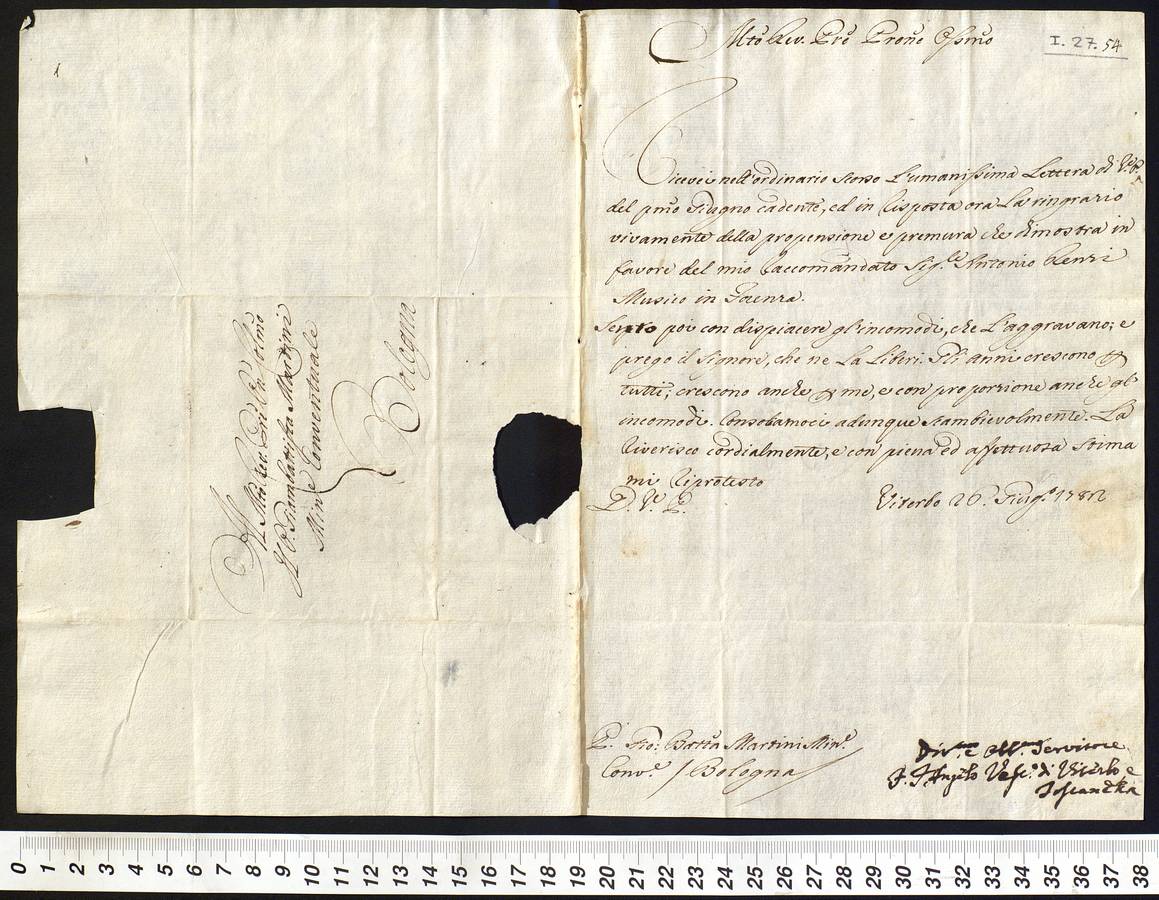 1
Al Mto Rev. Pre Prone Colmo
Il P. Giambatista Martini
Min.e Conventuale
Bologna
I. 27. 54
Mto Rev. Prē Proñe Ossmo
Ricevei nell'ordinario scorso l'umanissima Lettera di V. P.
del pmo Giugno cadente, ed in risposta ora La ringrazio
vivamente della propensione e premura che dimostra in
favore del mio raccomandato Sig.re Antonio Renzi
Musico in Faenza.
Sento poi con dispiacere gl'incomodi, che L'aggravano; e
prego il Signore, che ne La Liberi. Gli anni crescono p
tutti; crescono anche p me, e con proporzione anche gl'
incomodi. Consoliamoci adunque scambievolmente. La
riverisco cordialmente, e con piena ed affettuosa stima
mi riprotesto
D. V. P.
Viterbo 26. Giug.o
P. Gio: Batta Martini Min.e
Conv.e / Bologna
Div.mo e Obb.mo Servitore
F. F. Angelo Vesc.o di Viterbo e
Toscanella
0 1 2 3 4 5 6 7 8 9 10 11 12 13 14 15 16 17 18 19 20 21 22 23 24 25 26 27 28 29 30 31 32 33 34 35 36 37 38